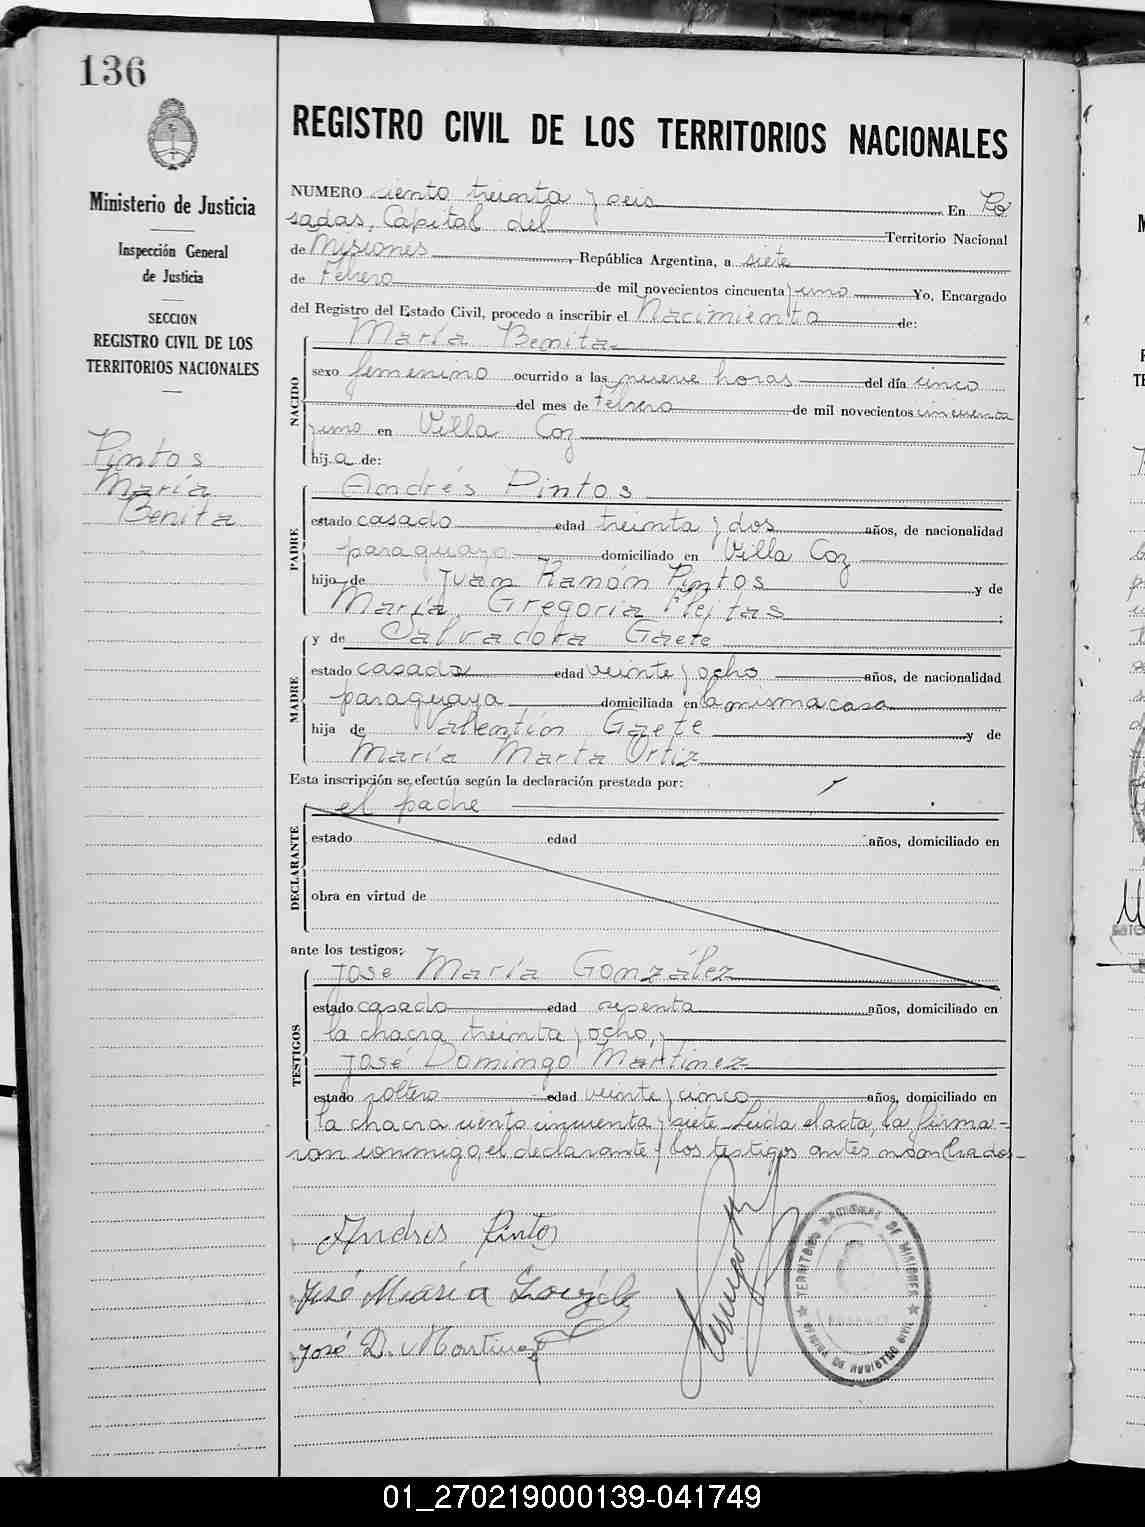 136
Ministerio de Justicia
Inspección General
de Justicia
SECCION
REGISTRO CIVIL DE LOS
TERRITORIOS NACIONALES
Pintos
María
Benita
REGISTRO CIVIL DE LOS TERRITORIOS NACIONALES
NUMERO ciento treinta y seis En Po
sadas, Capital del Territorio Nacional
de Misiones, República Argentina, a siete
de Febrero de mil novecientos cincuenta y uno Yo, Encargado
del Registro del Estado Civil, procedo a inscribir el Nacimiento de:
NACIDO
María Benita
sexo femenino ocurrido a las nueve horas del día cinco
del mes de Febrero de mil novecientos cincuenta
y uno en Villa Coz
hij a de:
PADRE
Andrés Pintos
estado casado edad treinta y dos años, de nacionalidad
paraguaya domiciliado en Villa Coz
hijo de Juan Ramón Pintos y de
María Gregoria Fleitas
MADRE
y de Salvadora Gaete
estado casada edad veinte y ocho años, de nacionalidad
paraguaya domiciliada en la misma casa
hija de Valentín Gaete y de
María Marta Ortiz
Esta inscripción se efectúa según la declaración prestada por:
DECLARANTE
el padre
estado edad años, domiciliado en
obra en virtud de
ante los testigos:
TESTIGOS
José María González
estado casado edad sesenta años, domiciliado en
la chacra treinta y ocho, y
José Domingo Martinez
estado soltero edad veinte y cinco años, domiciliado en
la chacra ciento cincuenta y siete. Leída el acta, la firma-
ron conmigo, el declarante y los testigos antes nombrados-
Andres Pintos
José María González
José D. Martinez
TERRITORIO NACIONAL DE MISIONES
OFICINA DE REGISTRO CIVIL
01_270219000139-041749